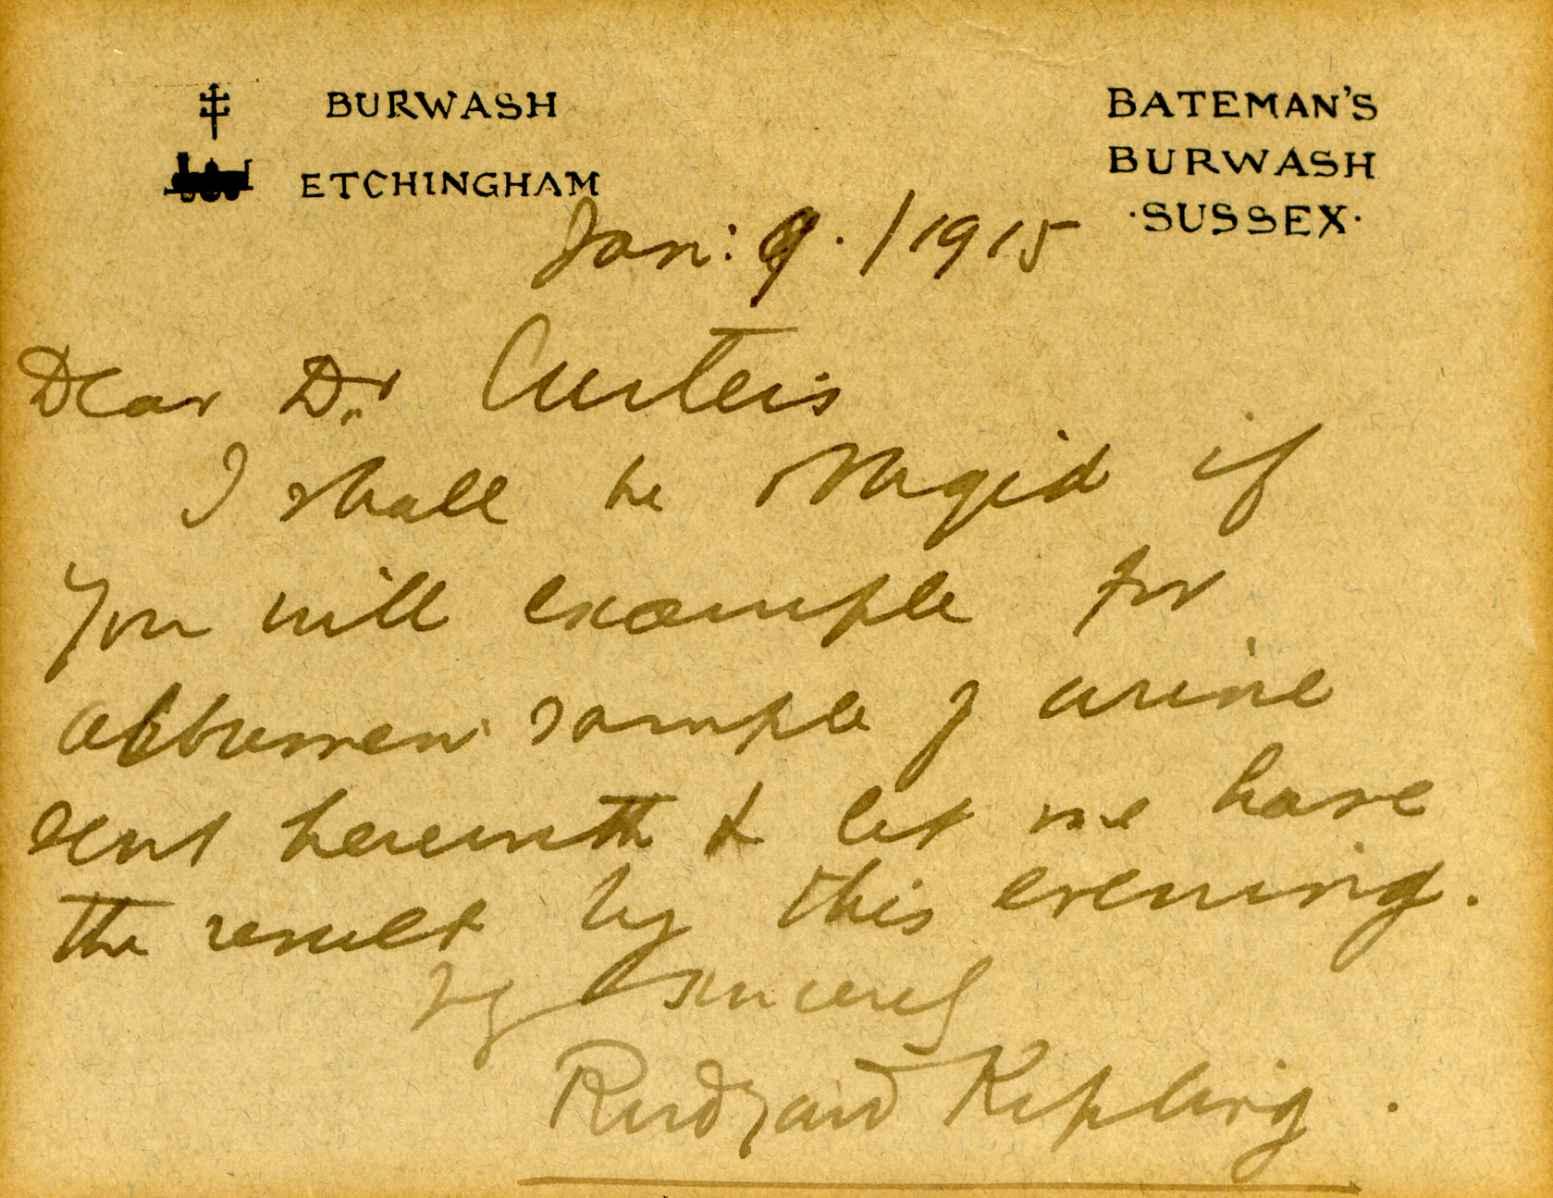 BURWASH
ETCHINGHAM
BATEMAN'S
BURWASH
·SUSSEX·
Jan: 9. / 1915
Dear Dr. Curteis
I shall be obliged if
you will example for
albumen sample of urine
sent herewith & let me have
the result by this evening.
sincerely
Rudyard Kipling.